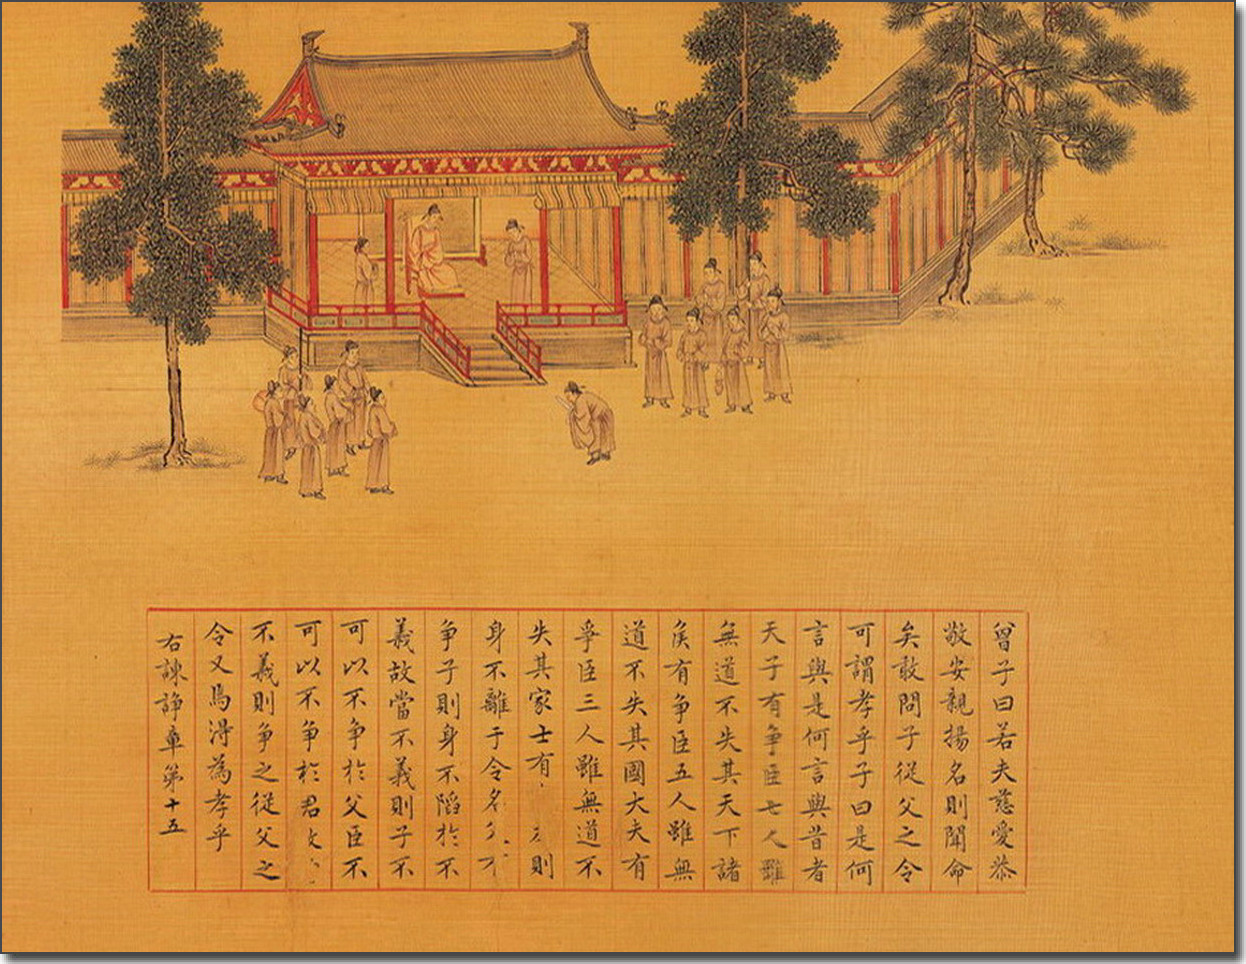 曾子曰若夫慈愛恭
敬安親揚名則聞命
矣敢問子從父之令
可謂孝乎子曰是何
言與是何言與昔者
天子有爭臣七人雖
無道不失其天下諸
矦有爭臣五人雖無
道不失其國大夫有
爭臣三人雖無道不
失其家士有則
身不離于令名不
爭子則身不陷於不
義故當不義則子不
可以不爭於父臣不
可以不爭於君故
不義則爭之從父之
令又焉得為孝乎
右諫諍章第十五